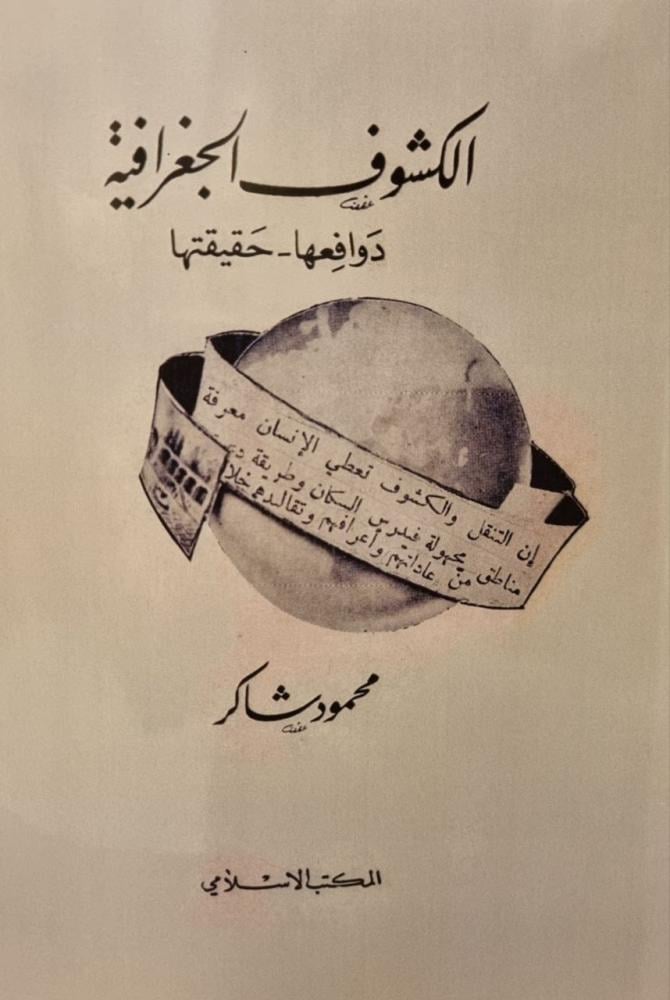 الكشوف الجغرافية
دَوافِعها - حَقيقتها
إن التنقل والكشوف تعطي الإنسان معرفة
مناطق مجهولة فيدرس السكان وطريقة
من عاداتهم وأعرافهم وتقاليدهم خلا
محمود شاكر
المكتب الإسلامي